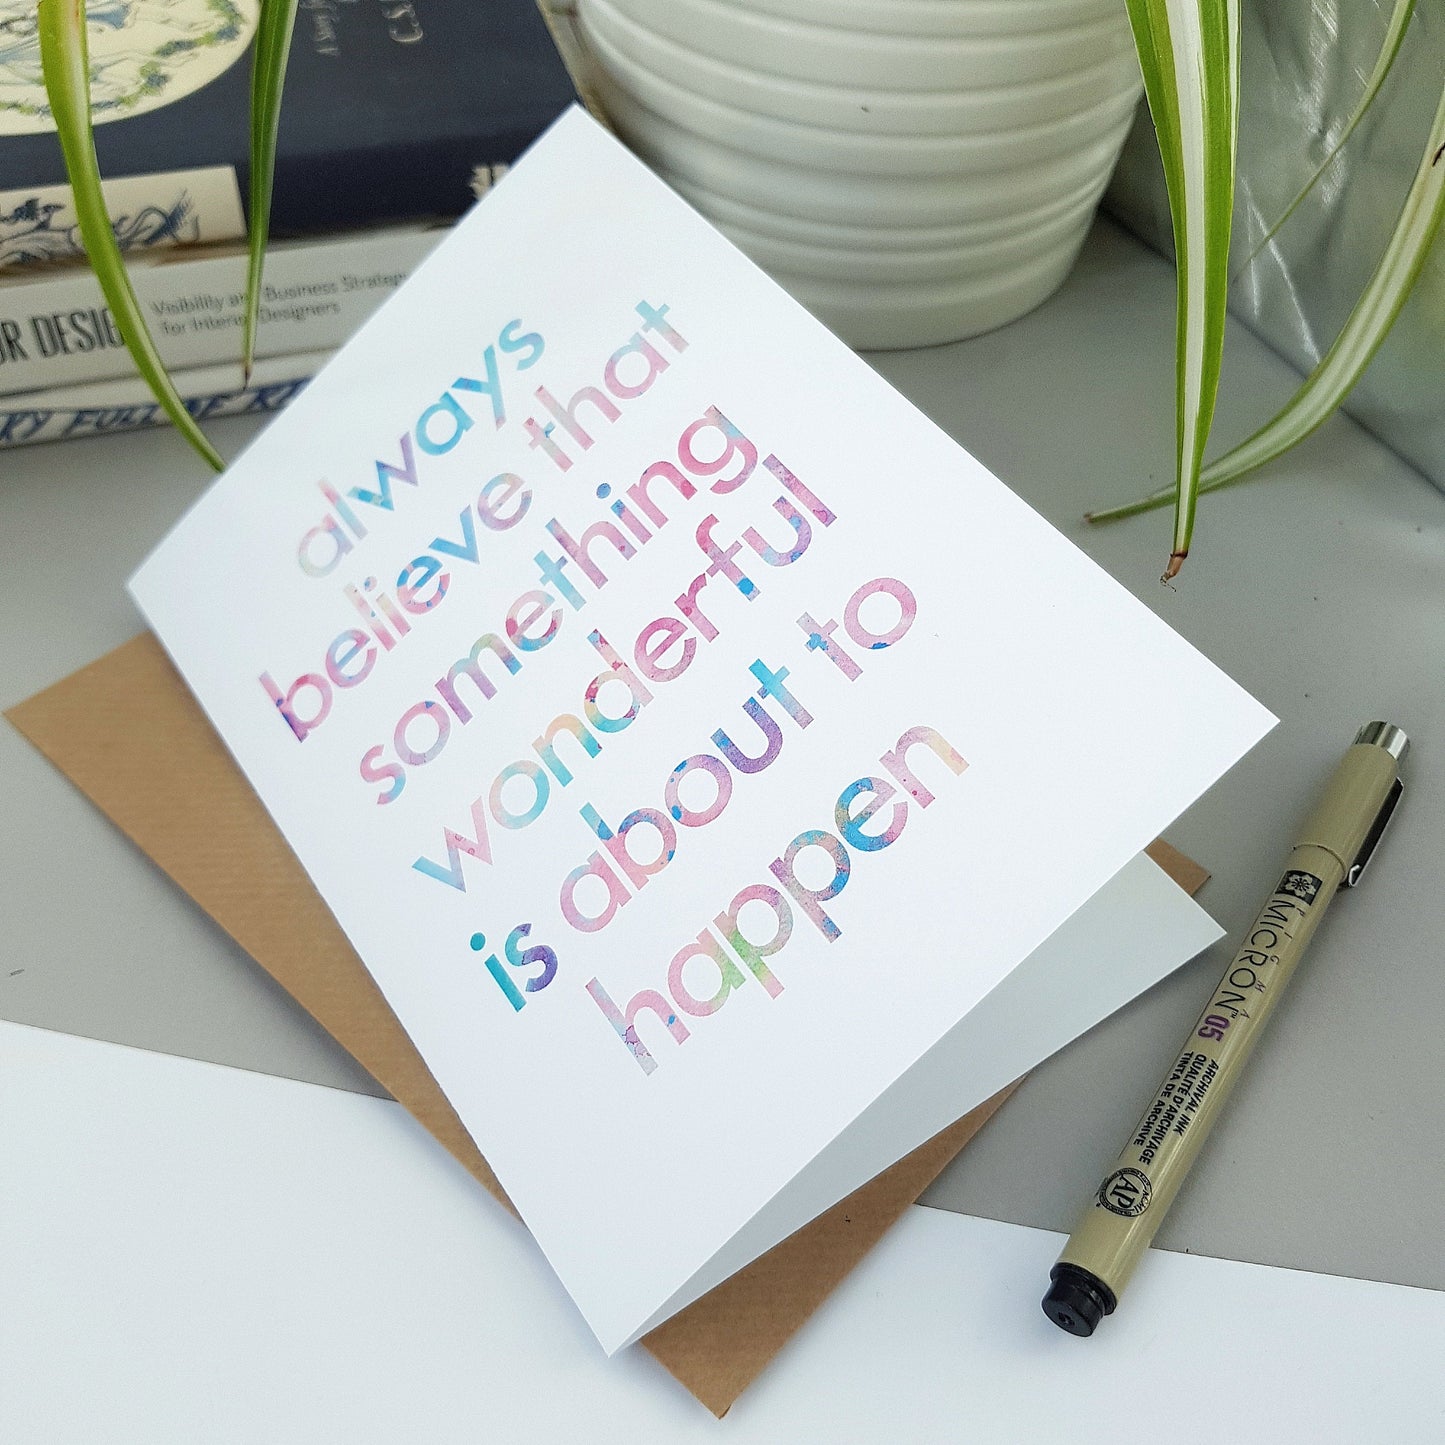 UR DESIG
Visibility an Business Strateg
for Interi Designers
RY FULL OF
always
believe that
something
wonderful
is about to
happen
PIGMA
MICRON™ 05
ARCHIVAL INK
QUALITÉ D'ARCHIVAGE
TINTA DE ARCHIVE
AP